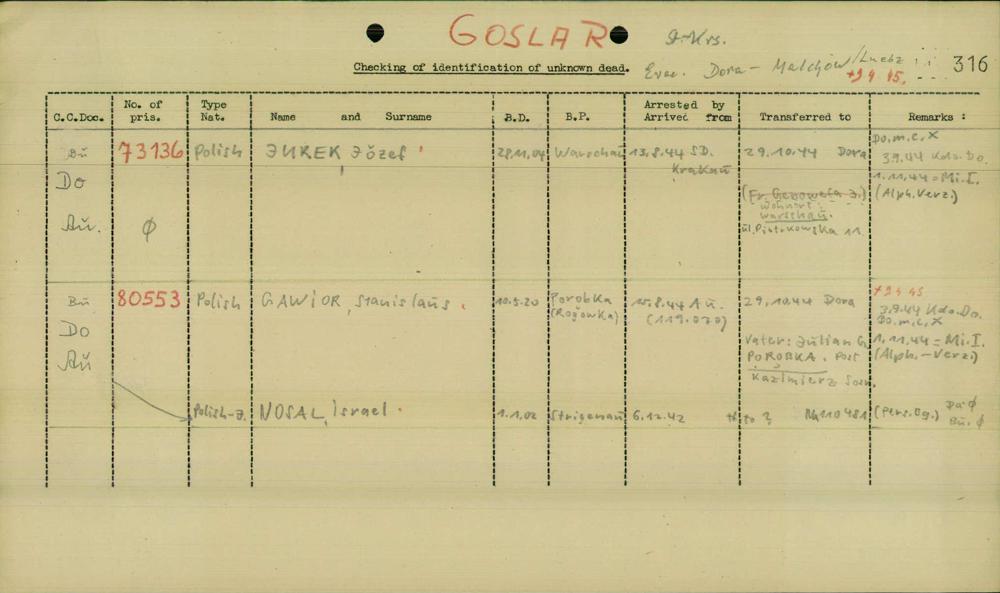 GOSLAR
Checking of identification of unknown dead.
Evac. Dora - Malchow/Luebz
+9 4 45.
316
C.C.Doc. No. of pris. Type Nat. Name and Surname B.D. B.P. Arrested by Arrived from Transferred to Remarks :
Bu 73136 Polish JUREK Józef 28.11.04 Warschau 13.8.44 SD. Krakau 29.10.44 Dora Do.m.c. X
3.9.44 Kdo. Do.
Do 1.11.44 = Mi.I.
(Fr. Genowefa J.) (Alph. Verz.)
Wohnort:
Warschau.
Au. ϕ ul. Piotrkowska 11.
Bu 80553 Polish GAWIOR, Stanislaus. 10.5.20 Porobka (Rogowka) 15.8.44 Au. (119.070) 29.10.44 Dora +9 4 45
3.9.44 Kdo. Do.
Do.m.c. X
Do Vater: Julian G. 1.11.44 = Mi.I.
Au POROBKA. Post (Alph.-Verz.)
Kazimierz
Polish-J. NOSAL, Israel. 1.1.02 6.12.42 to ? (Pers.Bg.) Do. ϕ
Bu. ϕ